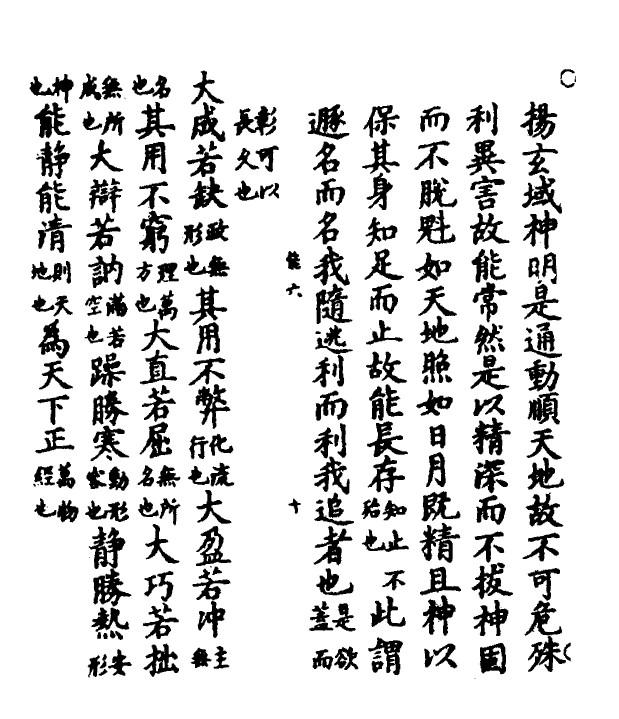 揚玄域神明是通動順天地故不可危殊
利異害故能常然是以精深而不拔神固
而不脫魁如天地照如日月既精且神以
保其身知足而止故能長存知止不殆也此謂
遯名而名我隨逃利而利我追者也是欲蓋而
六 十
彰可以長久也
大成若缺政無形也其用不弊化流行也大盈若冲主無
名也其用不窮理萬方也大直若屈無所名也大巧若拙
無所成也大辯若訥滿若空也躁勝寒動形容也静勝熱安形
神也能静能清則天地也為天下正萬物經也